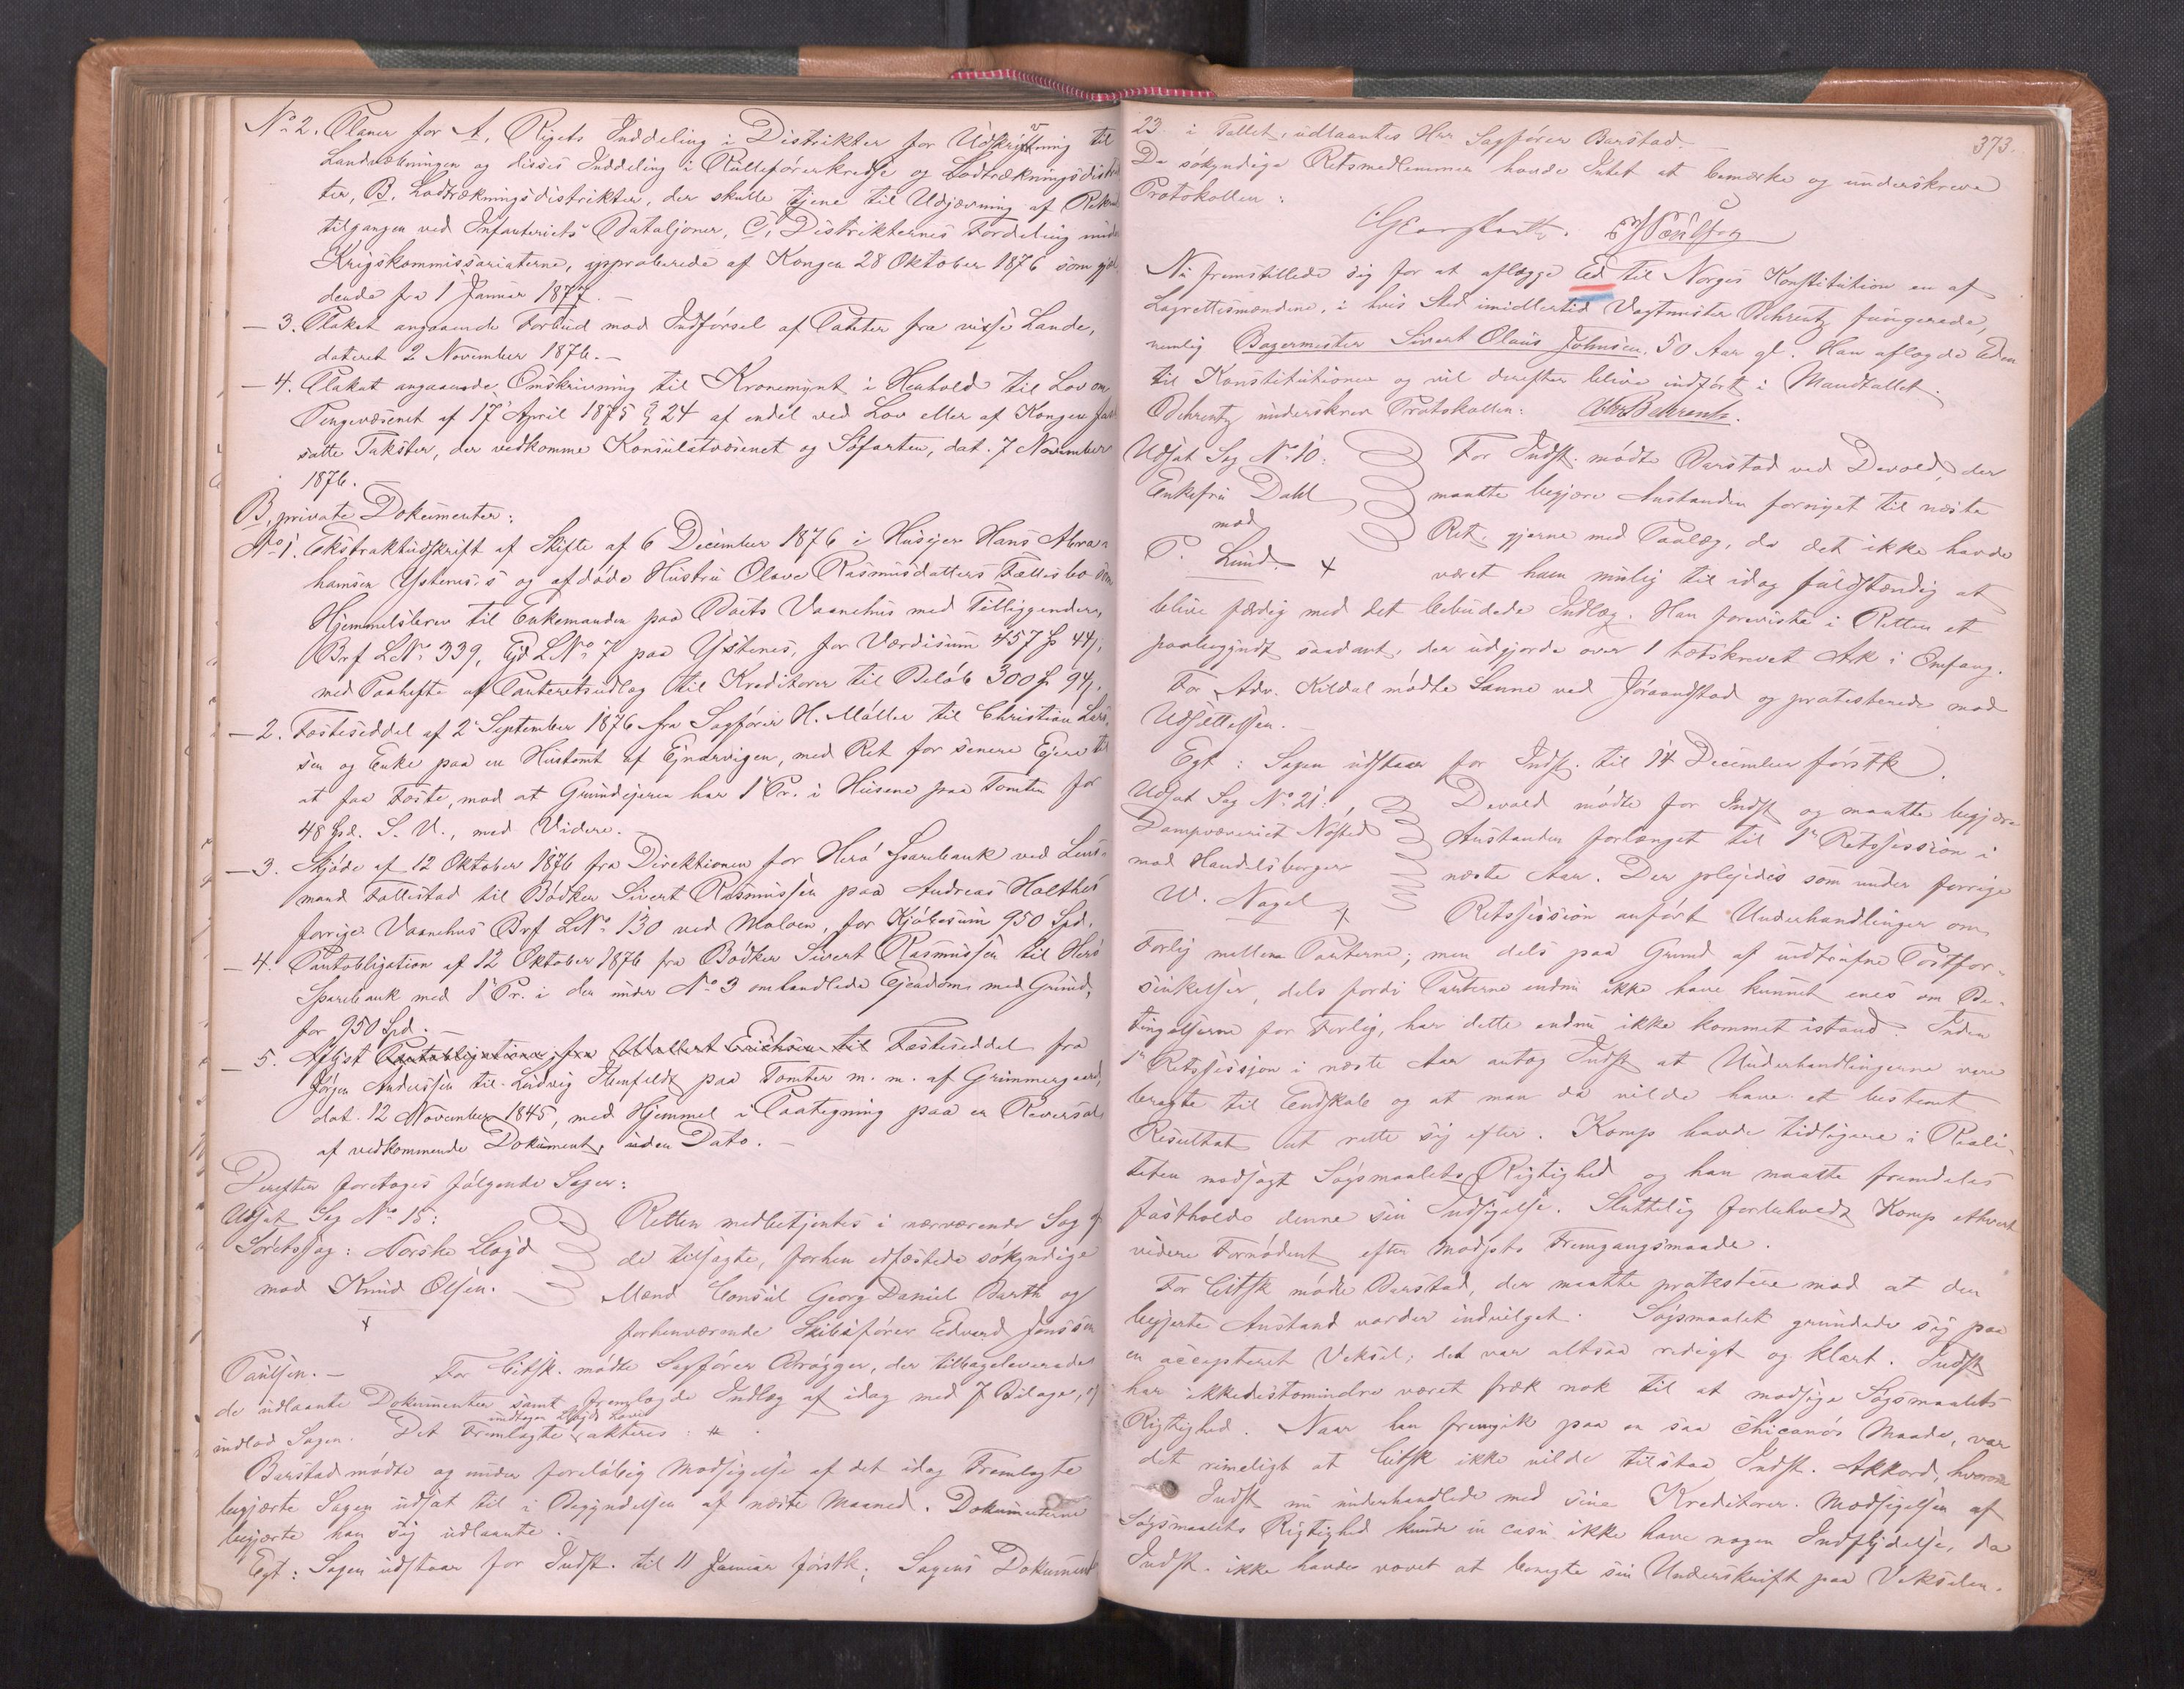 No 2. Planer for A, Rigets Inddeling i Distrikter for Udskrivning til
Landvæbningen og disses Inddeling i Rulleførerkredse og Lodtrækningsdistrik
ter, B. Lodtrækningsdistrikter, der skulle tjene til Udjævning af Rekrut
tilgangen ved Infanteriets Bataljoner, C, Distrikternes Fordeling under
Krigskommissariaterne, approberede af Kongen 28 Oktober 1876 som gjæl
dende fra 1 Januar 1877. —
— 3. Plakat angaaende Forbud mod Indførsel af Poteter fra visse Lande,
dateret 2 November 1876. —
— 4. Plakat angaaende Omskrivning til Kronemynt i Henhold til Lov om
Pengevæsenet af 17 April 1875 § 24 af endel ved Lov eller af Kongen fast
satte Takster, der vedkomme Konsulatvæsenet og Søfarten, dat. 7 November
1876.
B, private Dokumenter:
No 1. Ekstraktudskrift af Skifte af 6 December 1876 i Husejer Hans Abra-
hamsen Ystenes's og afdøde Hustru Olave Rasmusdatters Fællesbo som
Hjemmelsbrev til Enkemanden paa Boets Vaanehus med Tilliggender,
Brf LNo 339, Ejd LNo 7 paa Ystenes, for Værdisum 457 Sp 44 ;
med Paahefte af Panteretsudlæg til Kreditorer til Beløb 300 Sp 94 .
— 2. Festeseddel af 2 September 1876 fra Sagfører H. Møller til Christian Lars-
sen og Enke paa en Hustomt af Ejnarvigen, med Ret for senere Ejere til
at faa Feste, mod at Grundejeren har 1 Pr. i Husene paa Tomten for
48 Spd. S. V., med Videre. —
— 3. Skjøde af 12 Oktober 1876 fra Direktionen for Herø Sparebank ved Lens-
mand Follestad til Bødker Sivert Rasmussen paa Andreas Holthes
forrige Vaanehus Brf LNo 130 ved Moloen, for Kjøbesum 950 Spd.
— 4. Pantobligation af 12 Oktober 1876 fra Bødker Sivert Rasmussen til Herø
Sparebank med 1 Pr. i den under No 3 omhandlede Ejendom med Grund,
for 950 Spd. —
— 5. Aflyst Pantobligation fra Erichsen til Festeseddel fra
Jørgen Anderssen til Ludvig paa Tomter m. m. af Grimmergaard,
dat. 12 November 1845, med Hjemmel i Paategning paa en Reversal
af vedkommende Dokument, uden Dato. —
Derefter foretoges følgende Sager:
Udsat Sag No 15:
Søretssag: Norske Lloyd
mod Knud Olsen.
+
Retten medbetjentes i nærværende Sag af
de tilsagte, forhen edfæstede søkyndige
Mænd Consul Georg Daniel Barth og
forhenværende Skibsfører Edvard Jenssen
Paulsen. — For Citsk. mødte Sagfører Brøgger, der tilbageleverede
de udlaante Dokumenter samt fremlagde Indlæg af idag med 7 Bilage, og
indlod Sagen. Det Fremlagte undtagen Lloyds Love akteres: #
Barstad mødte og under foreløbig Modsigelse af det idag Fremlagte
begjærte Sagen udsat til i Begyndelsen af næste Maaned. Dokumenterne
begjærte han sig udlaante.
Egt: Sagen udstaar for Indst. til 11 Januar førstk. Sagens Dokument
373.
23 i Tallet, udlaantes Hrr Sagfører Barstad. —
De søkyndige Retsmedlemmer havde Intet at bemærke og underskreve
Protokollen:
Nu fremstillede sig for at aflægge Ed til Norges Konstitution en af
Lagrettesmændene, i hvis Sted imidlertid Vagtmester Behrentz fungerede,
nemlig Bagermester Sivert Olaus Johnsen, 50 Aar gl. Han aflagde Eden
til Konstitutionen og vil derefter blive indført i Mandtallet.
Behrentz underskrev Protokollen: Behrentz.
Udsat Sag No 10:
Enkefru Dahl
mod
P. Lund. +
For Indst. mødte Barstad ved Devold, der
maatte begjære Anstanden fornyet til næste
Ret, gjerne med Paalæg, da det ikke havde
været ham mulig til idag fuldstændig at
blive færdig med det bebudede Indlæg. Han foreviste i Retten et
paabegyndt saadant, der udgjorde over 1 tætskrevet Ark i Omfang.
For Adv. Kildal mødte Sanne ved Jøraandstad og protesterede mod
Udsættelsen. —
Egt: Sagen udstaar for Indst. til 14 December førstk.
Udsat Sag No 21:
Dampvæveriet Nøsted
mod Handelsborger
W. Nagel
+
Devold mødte for Indst og maatte begjære
Anstanden forlænget til 1ste Retssession i
næste Aar. Der plejedes som under forrige
Retssession anført Underhandlinger om
Forlig mellem Parterne; men dels paa Grund af indtrufne Postfor-
sinkelser, dels fordi Parterne endnu ikke have kunnet enes om Be-
tingelserne for Forlig, har dette endnu ikke kommet istand. Inden
1ste Retssession i næste Aar antog Indst at Underhandlingerne vare
bragte til Endskab og at man da vilde have et bestemt
Resultat at rette sig efter. Komp havde tidligere i Reali-
teten modsagt Søgsmaalets Rigtighed og han maatte fremdeles
fastholde denne sin Indsigelse. Sluttelig forbeholdt Komp ethvert
videre Fornødent efter Modpts Fremgangsmaade.
For Citsk mødte Barstad, der maatte protestere mod at den
begjærte Anstand vorder indvilget. Søgsmaalet grundede sig paa
en accepteret Veksel; det var altsaa redigt og klart. Indst
har ikkedestomindre været fræk nok til at modsige Søgsmaalets
Rigtighed. Naar han fremgik paa en saa chicanøs Maade, var
det rimeligt at Citsk ikke vilde tilstaa Indst. Akkord, hvorom
Indst nu underhandlede med sine Kreditorer. Modsigelsen af
Søgsmaalets Rigtighed kunde in casu ikke have nogen Indflydelse, da
Indst. ikke havde vovet at benegte sin Underskrift paa Vekselen.